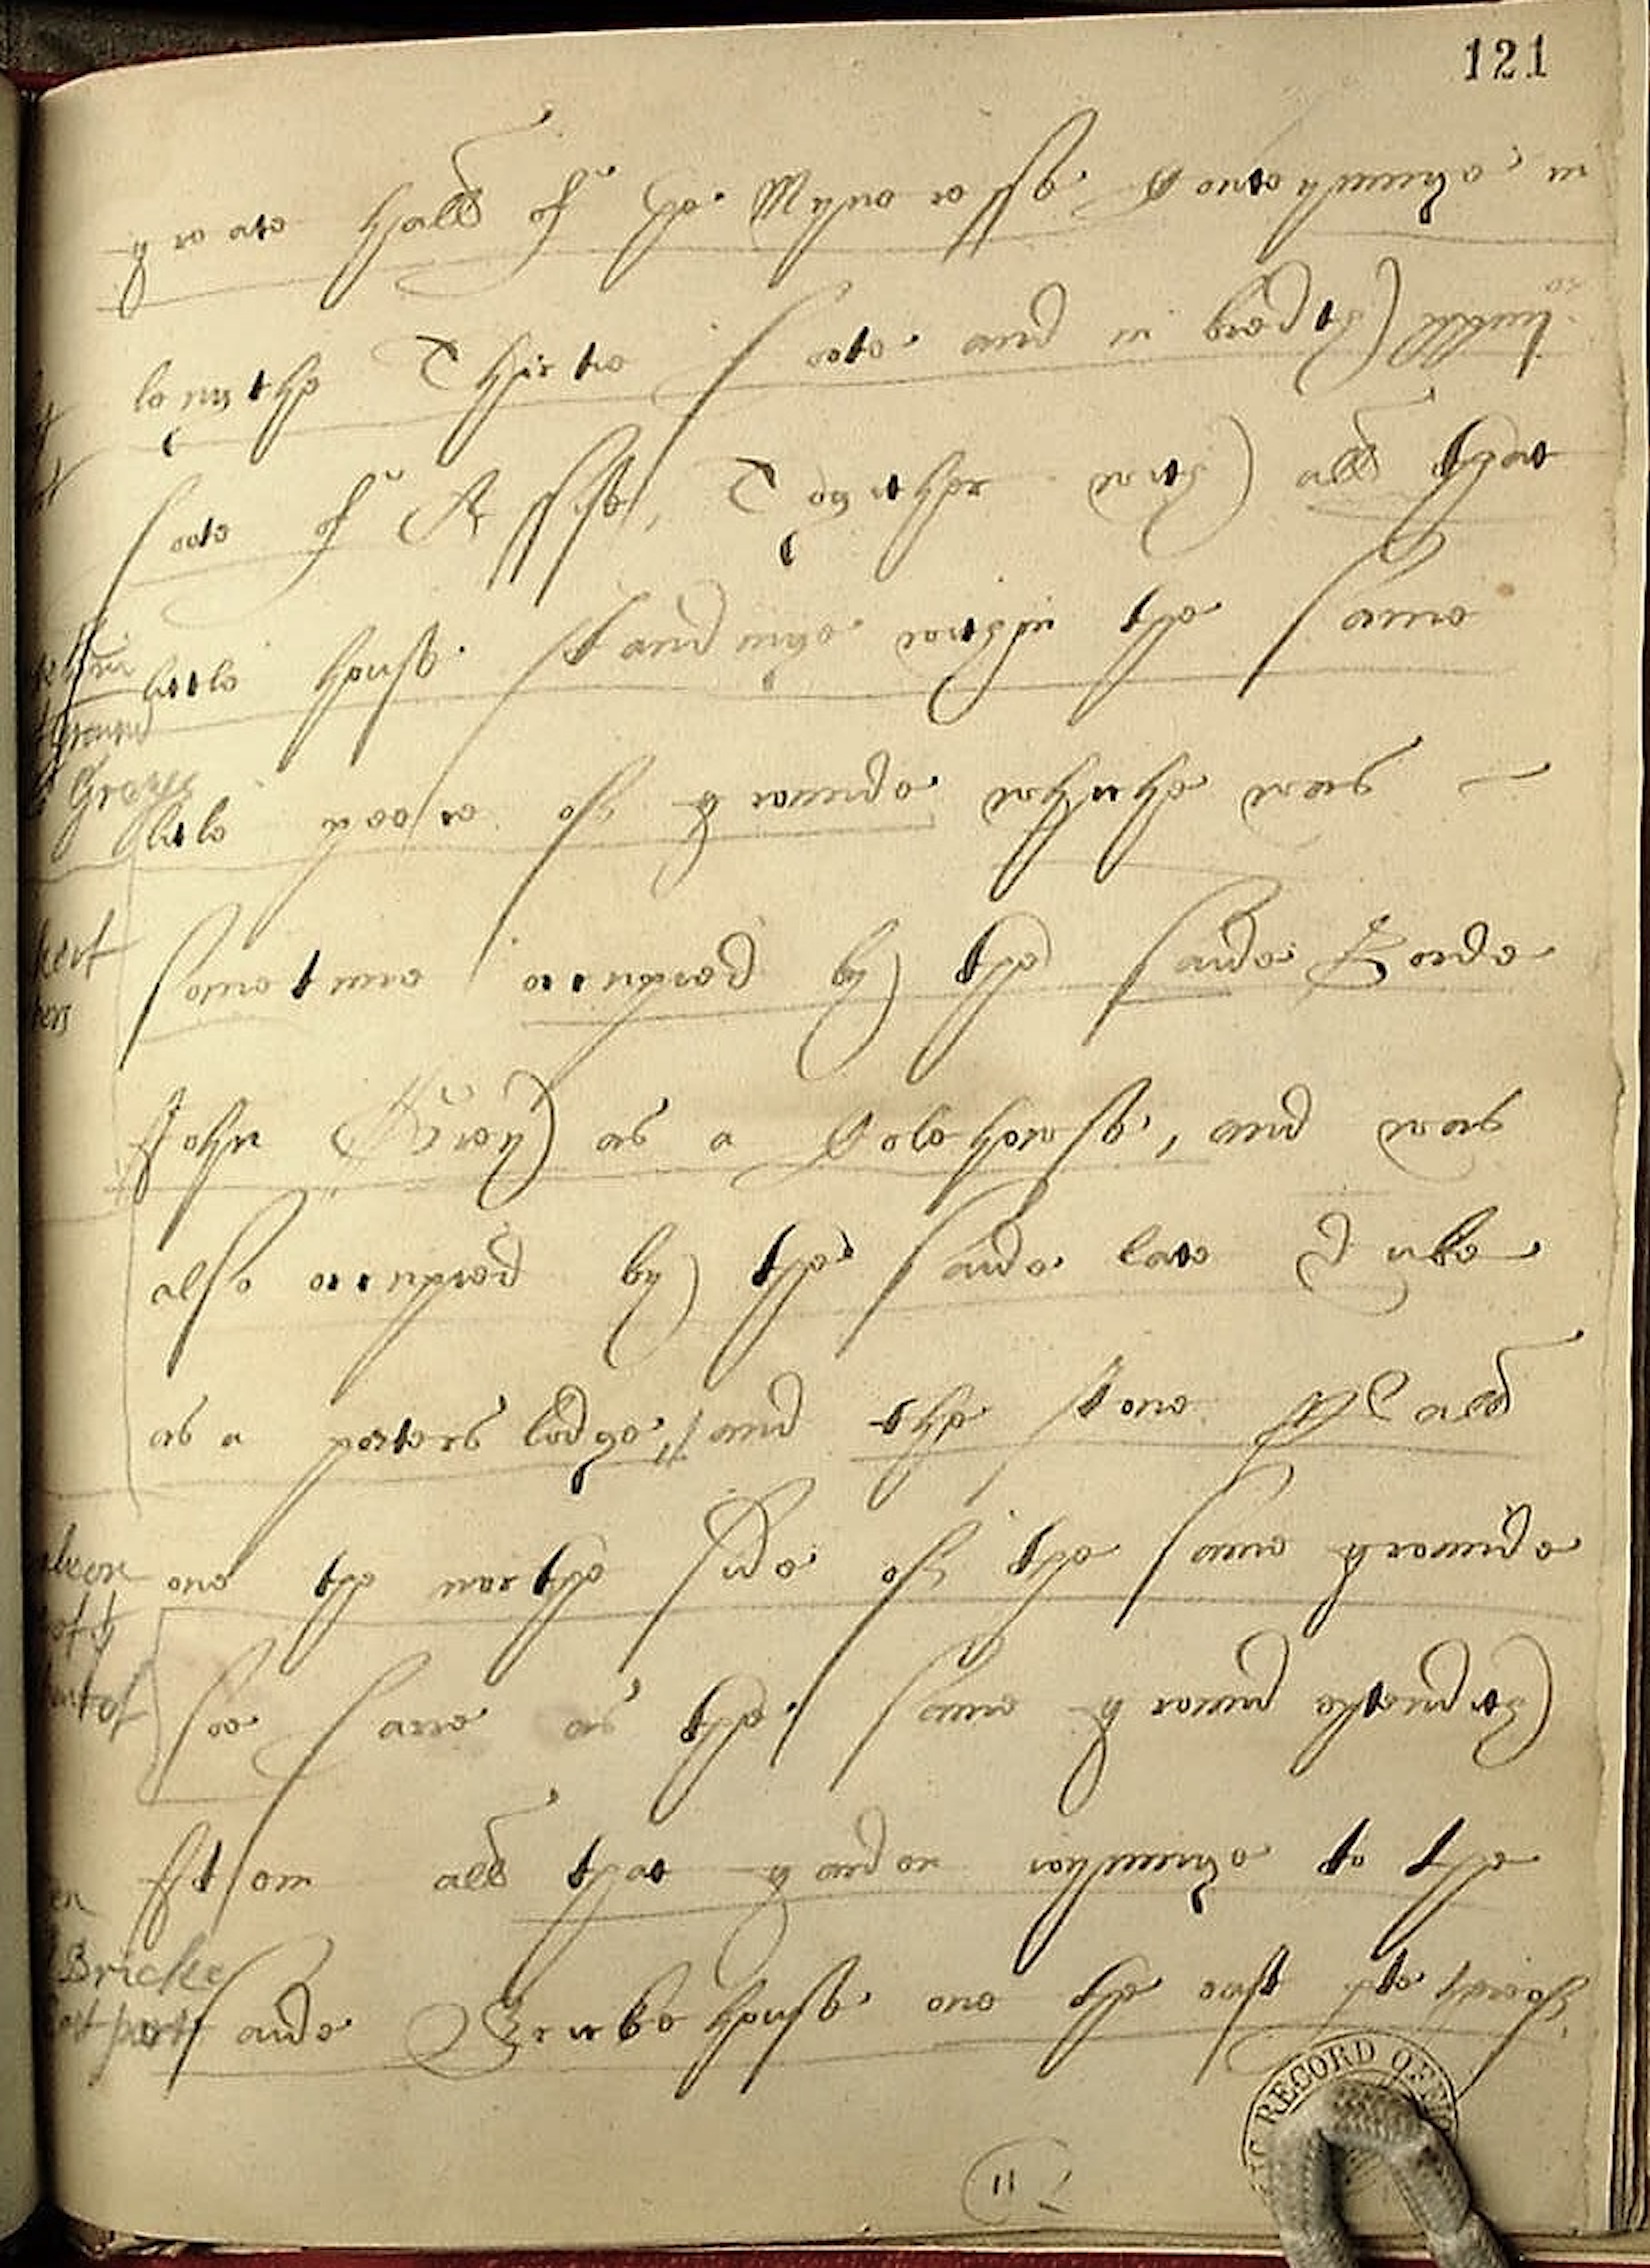 121
greate hall of the Mynoresse conteyninge in
lenngthe Thirtie foote and in bredthe twelve
foote of Assise, Together with all that
little house standinge within the same
litle peece of grounde whiche was
sometime occupyed by the saide Lorde
John Grey as a Colehouse, and was
also occupyed by the saide late Duke
as a porters lodge, and the stone Wall
one the northe side of the same grounde
soe farre as the same ground extendeth
Item all that garden adioyninge to the
saide Bricke house one the east parte thereof,
Greyes
Bricke
RECORD OF